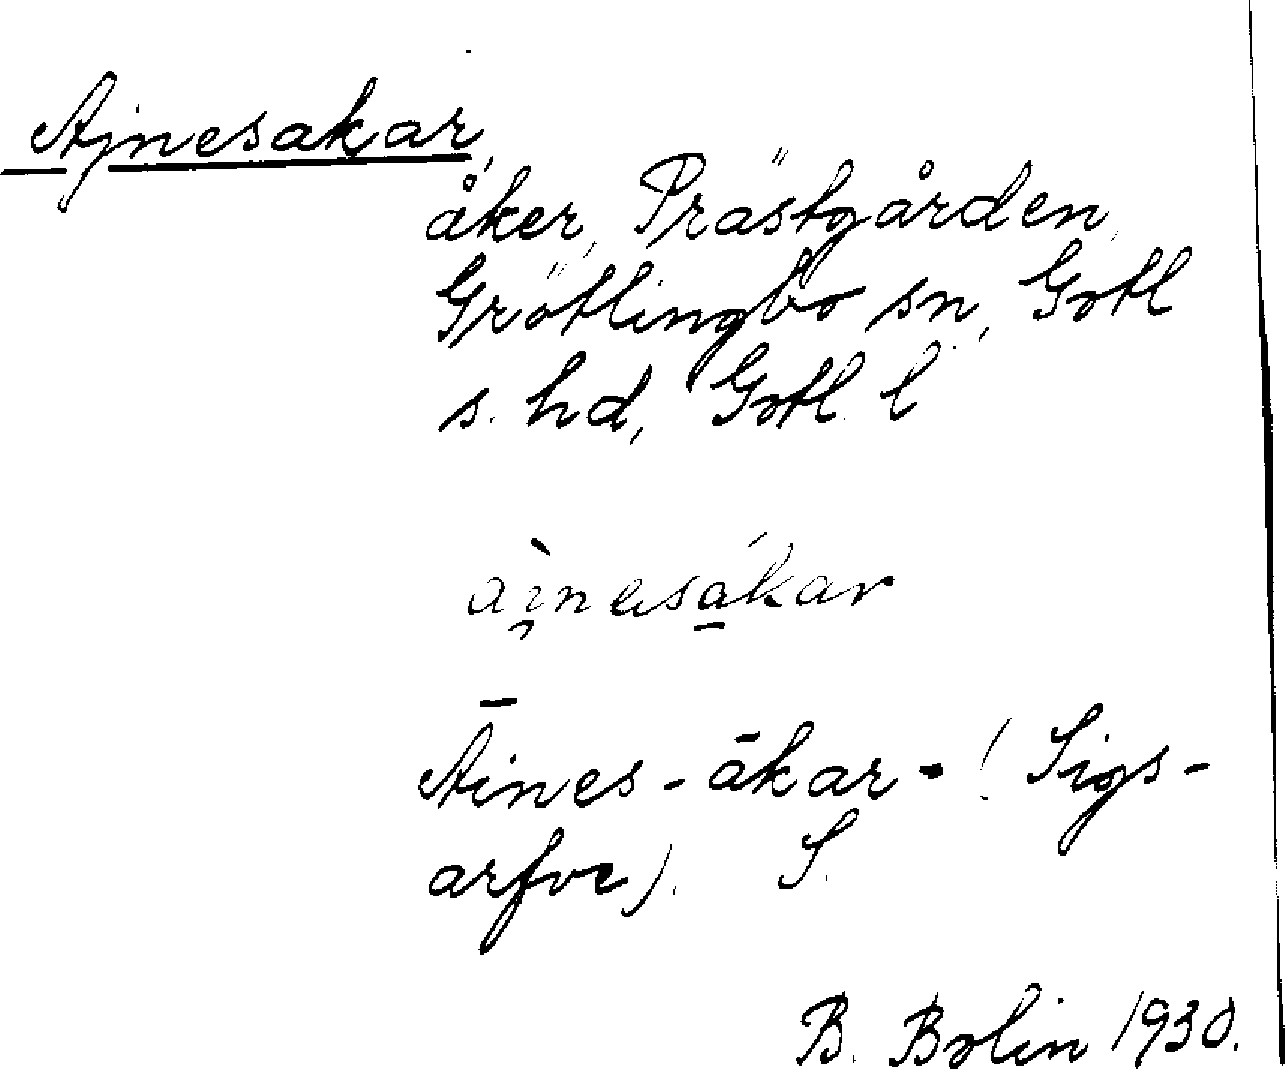 Ajnesakar,
åker, Prästgården,
Grötlingbo sn, Gotl
s. hd, Gotl. l
àɪ̯nesa̱kar
Āines - ākar - (Sigs-
arfve). S.
B. Bolin 1930.